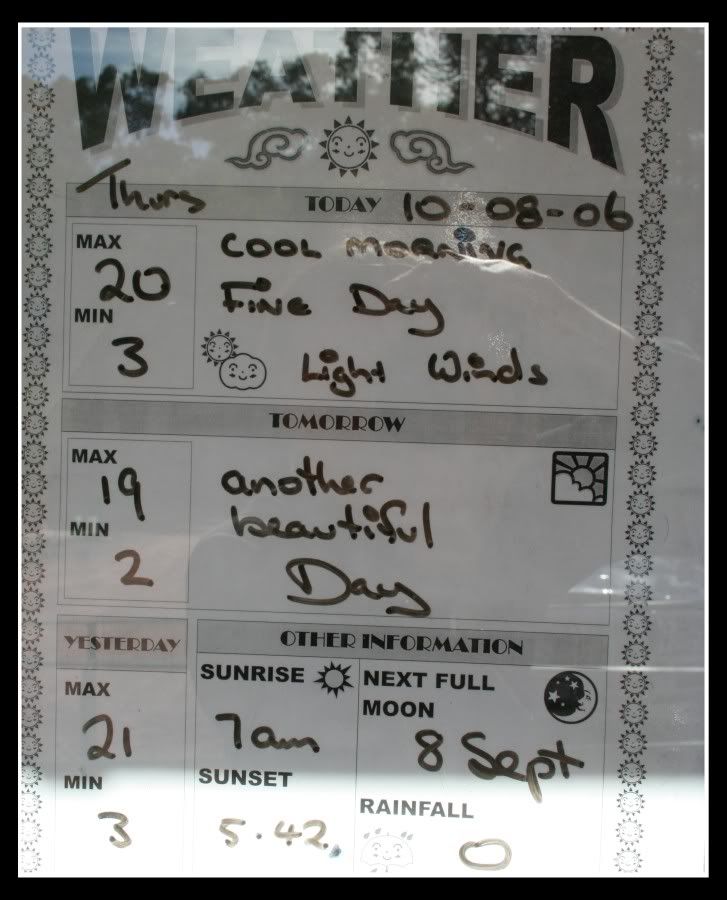 WEATHER
Thurs TODAY 10-08-06
MAX
20
MIN
3
COOL MORNING
FINE Day
Light Winds
TOMORROW
MAX
19
MIN
2
another
beautiful
Day
YESTERDAY
MAX
21
MIN
3
OTHER INFORMATION
SUNRISE
7am
SUNSET
5.42
NEXT FULL
MOON
8 Sept
RAINFALL
0